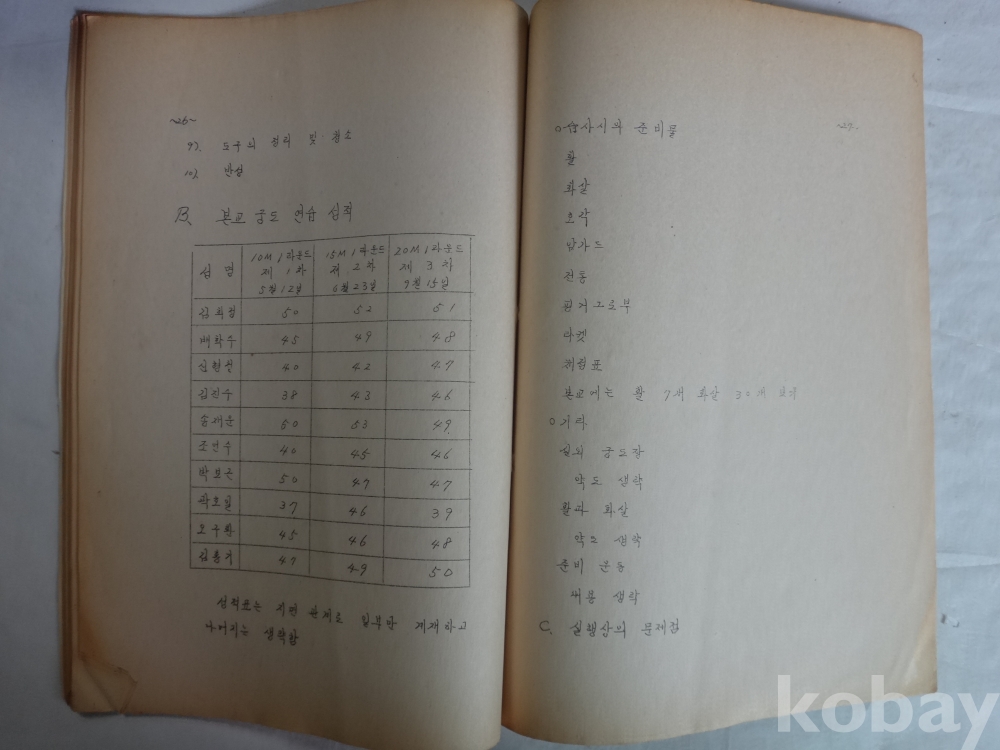 ~26~
9). 도구의 정리 및 청소
10). 반성
B. 본교 궁도 연습 성적
성명 10M 1라운드 제 1차 5월 12일 15M 1라운드 제 2차 6월 23일 20M 1라운드 제 3차 9월 15일
50 52 51
45 49 48
40 42 47
김진수 38 43 46
송재운 50 53 49
40 45 46
박보근 50 47 47
곽호일 37 46 39
오구환 45 46 48
47 49 50
성적표는 지면 관계로 일부만 게재하고
나머지는 생략함
~27~
준비물
활
화살
암가드
전통
타켓
채점표
본교에는 활 7개 화살 30개
○ 기타
실외 궁도장
약도 생략
활과 화살
생략
준비 운동
내용 생략
C. 실행상의 문제점
kobay